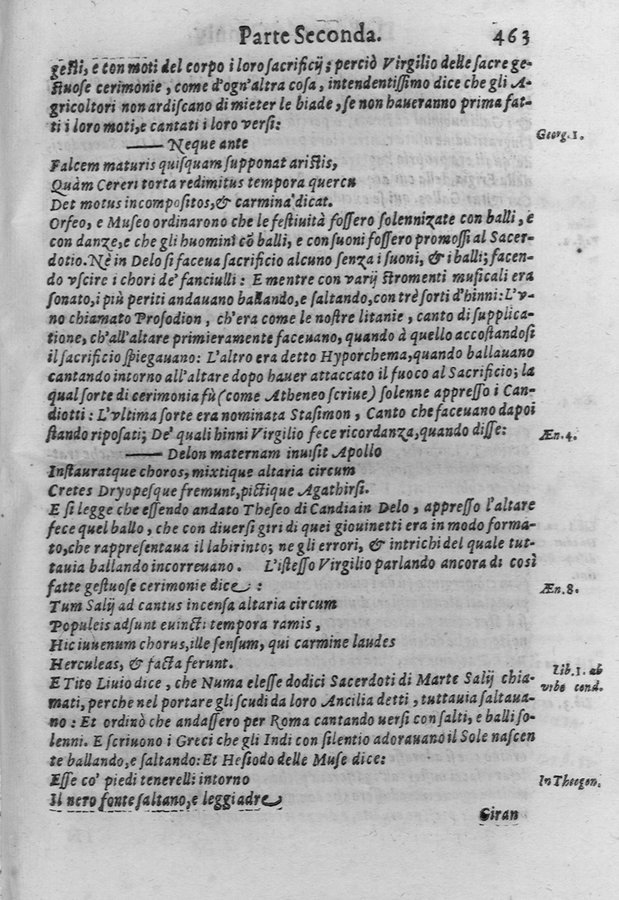 Parte Seconda. 463
gesti, e con moti del corpo i loro sacrificij; perciò Virgilio delle sacre ge-
stuose cerimonie, come d'ogn'altra cosa, intendentissimo dice che gli A-
gricoltori non ardiscano di mieter le biade, se non haueranno prima fat-
ti i loro moti, e cantati i loro versi:
Georg. 1.
—— Neque ante
Falcem maturis quisquam supponat aristis,
Quàm Cereri torta redimitus tempora quercu
Det motus incompositos, & carmina dicat.
Orfeo, e Museo ordinarono che le festiuità fossero solennizate con balli, e
con danze, e che gli huomini cō balli, e con suoni fossero promossi al Sacer-
dotio. Nè in Delo si faceua sacrificio alcuno senza i suoni, & i balli; facen-
do vscire i chori de' fanciulli: E mentre con varij stromenti musicali era
sonato, i più periti andauano ballando, e saltando, con trè sorti d'hinni: L'v-
no chiamato Prosodion, ch'era come le nostre litanie, canto di supplica-
tione, ch'all'altare primieramente faceuano, quando à quello accostandosi
il sacrificio spiegauano: L'altro era detto Hyporchema, quando ballauano
cantando intorno all'altare dopo hauer attaccato il fuoco al Sacrificio; la
qual sorte di cerimonia fù (come Atheneo scriue) solenne appresso i Can-
diotti: L'vltima sorte era nominata Stasimon, Canto che faceuano dapoi
stando riposati; De' quali hinni Virgilio fece ricordanza, quando disse:
Æn. 4.
—— Delon maternam inuisit Apollo
Instauratque choros, mixtique altaria circum
Cretes Dryopesque fremunt, pictique Agathirsi.
E si legge che essendo andato Theseo di Candia in Delo, appresso l'altare
fece quel ballo, che con diuersi giri di quei giouinetti era in modo forma-
to, che rappresentaua il labirinto; ne gli errori, & intrichi del quale tut-
tauia ballando incorreuano. L'istesso Virgilio parlando ancora di così
fatte gestuose cerimonie dice:
Æn. 8.
Tum Salij ad cantus incensa altaria circum
Populeis adsunt euincti tempora ramis,
Hic iuuenum chorus, ille sensum, qui carmine laudes
Herculeas, & facta ferunt.
E Tito Liuio dice, che Numa elesse dodici Sacerdoti di Marte Salij chia-
lib. 1. ab
vrbe cond.
mati, perche nel portare gli scudi da loro Ancilia detti, tuttauia saltaua-
no: Et ordinò che andassero per Roma cantando uersi con salti, e balli so-
lenni. E scriuono i Greci che gli Indi con silentio adorauano il Sole nascen
te ballando, e saltando: Et Hesiodo delle Muse dice:
Esse co' piedi tenerelli intorno
In Theogon.
Il nero fonte saltano, e leggiadre
Giran